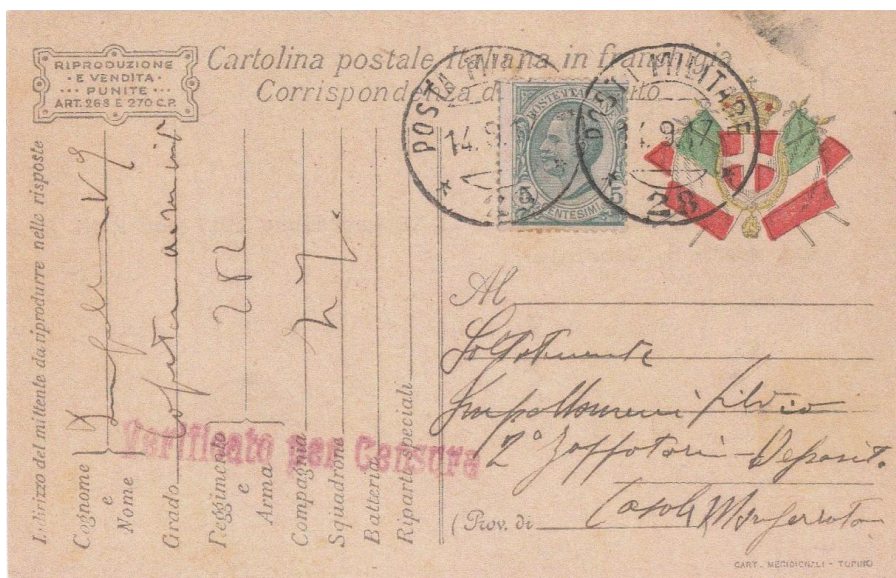 RIPRODUZIONE
E VENDITA
PUNITE
ART. 268 E 270 C.P.
Cartolina postale Italiana in franchigia
Corrispondenza
POSTA MILITARE
14.9.
POSTE ITALIANE
5 5
CENTESIMI
POSTA MILITARE
14.9.17
28
Indirizzo del mittente da riprodurre nelle risposte
Cognome
e
Nome
Grado
Reggimento 282
e
Arma
Compagnia
Squadrone
Batteria
Riparti speciali
Verificato per Censura
Al
Sottotenente
Silvio
2° Zappatori - Deposito
(Prov. di Casale Monferrato
CART. MERIDIONALI - TORINO